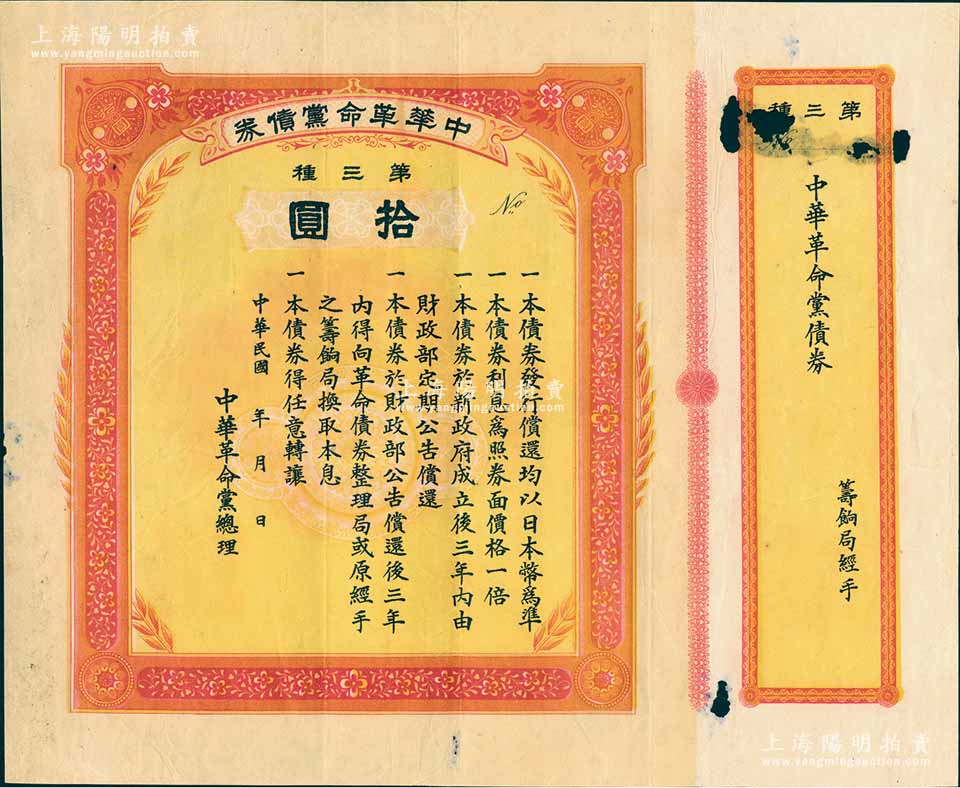 上海陽明拍賣
www.yangmingauction.com
第三種
中華革命黨債券
籌餉局經手
中華革命黨債券
第三種
拾圓
No
一本債券發行償還均以日本幣爲準
一本債券利息爲照券面價格一倍
一本債券於新政府成立後三年內由
財政部定期公告償還
一本債券於財政部公告償還後三年
內得向革命債券整理局或原經手
之籌餉局換取本息
一本債券得任意轉讓
中華民國 年 月 日
中華革命黨總理
上海陽明拍賣
www.yangmingauction.com
上海陽明拍賣
www.yangmingauction.com